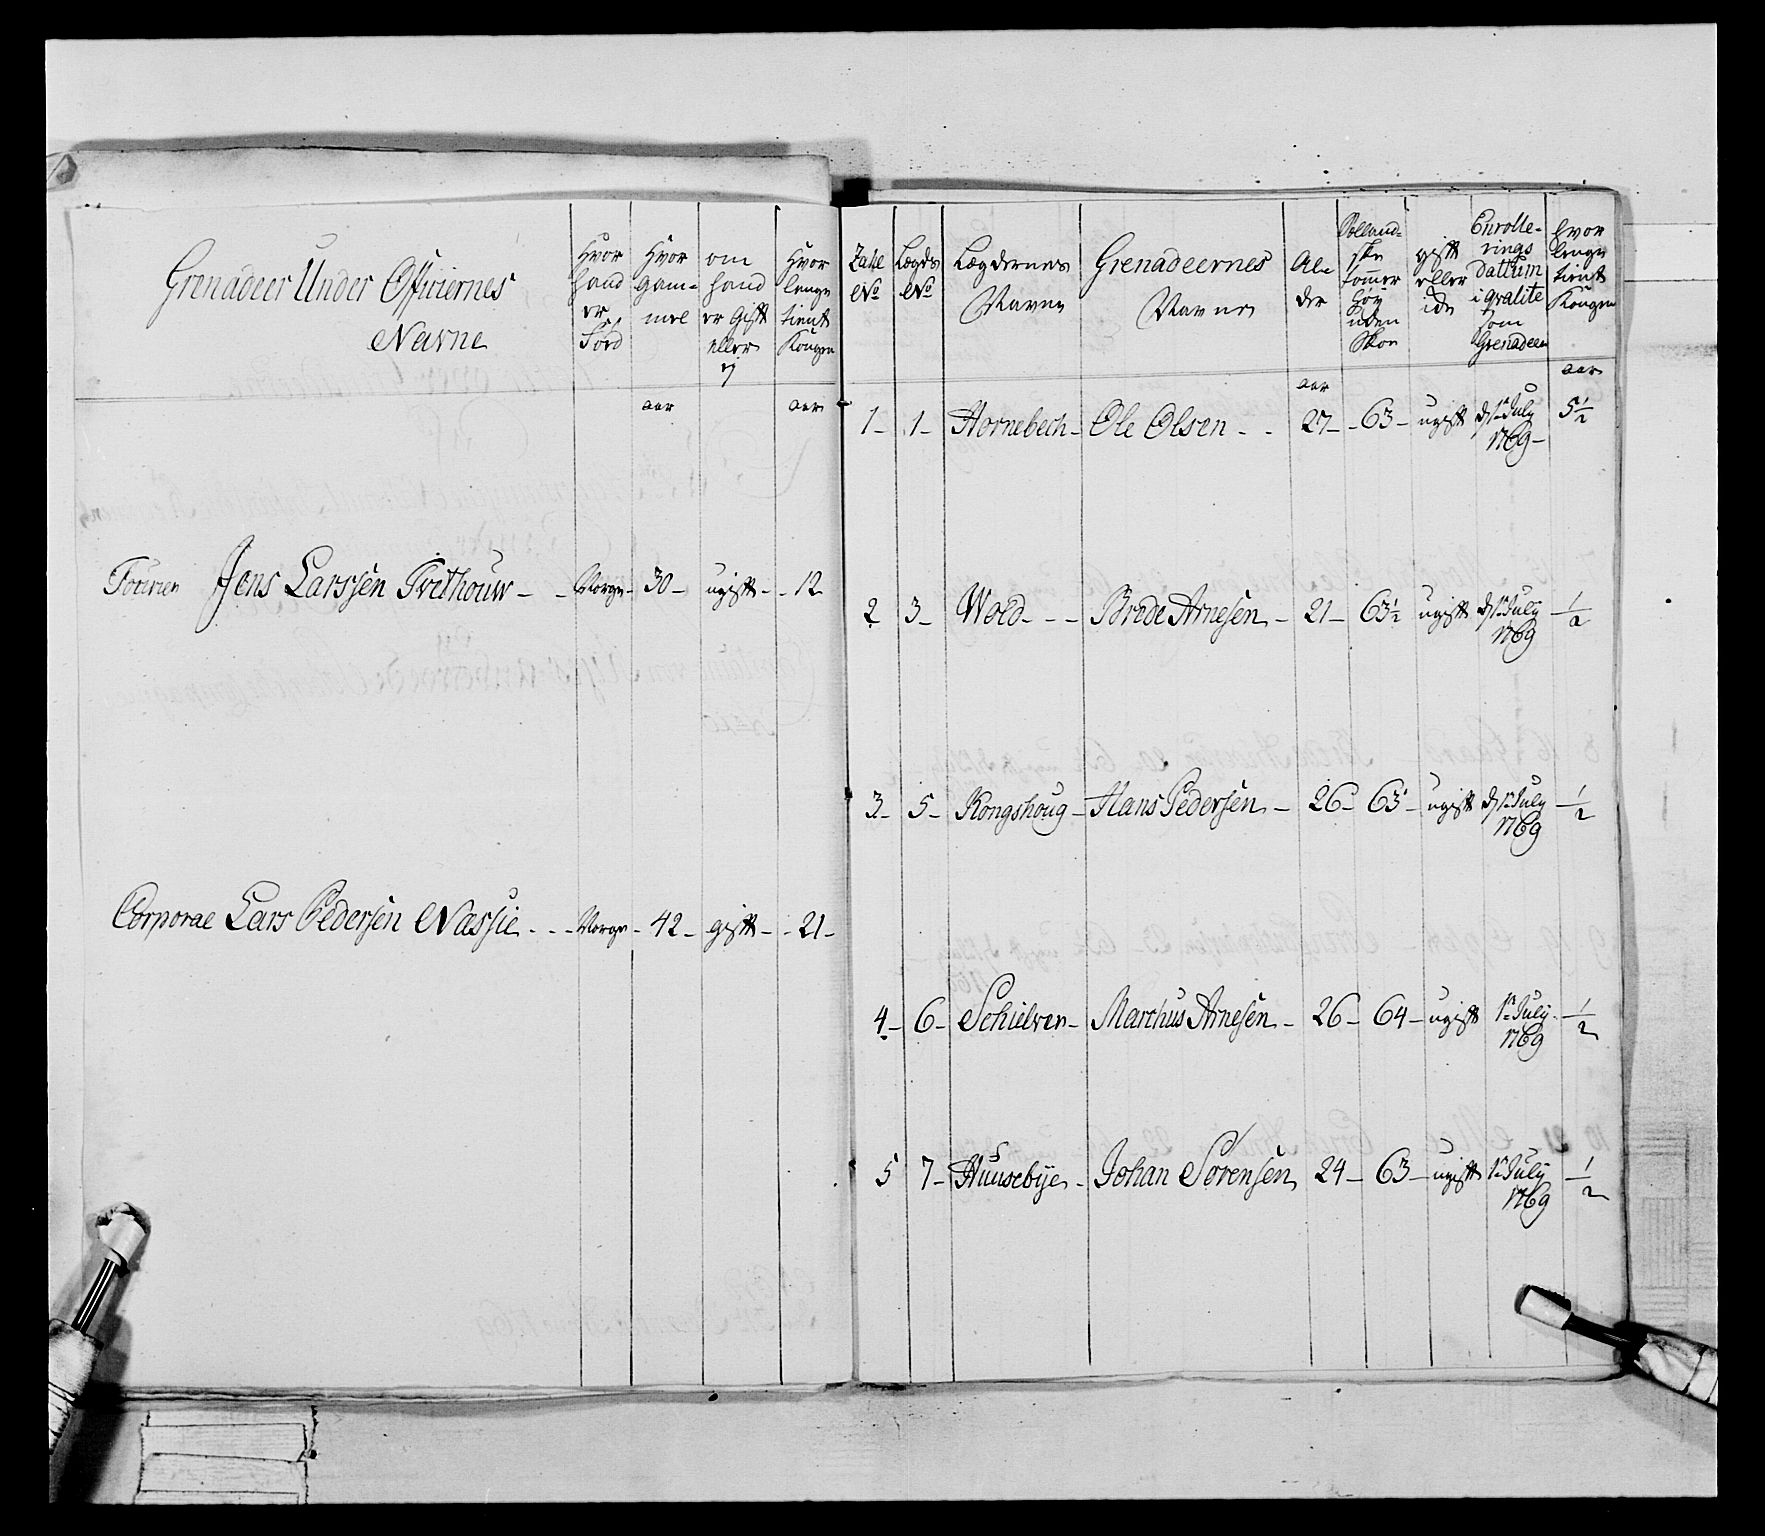 Grenadeer Under Officiernes
Navne
Hvor
hand
er
Född
Hvor
Gam-
mel
om
hand
er Gift
eller
ej
Hvor
lenge
tient
Kongen
aar
aar
Fourier Jens Larssen Tvethouw - - Norge - 30 - ugift - - 12
Corporal Lars Pedersen Nassie - - - Norge - 42 - gift - - 21 -
Tahl
No
Lægds
No
Lægdernes
Navne
Grenadeernes
Navne
Al-
der
Holland-
ske
tommer
höy
uden
Skoe
gift
eller
Enrolle-
rings
dattum
i qvalite
som
Grenadeer
hvor
lenge
tient
Kongen
aar
aar
1 - 1 - Hornebech - Ole Olsen - - 27 - - 63 - ugift d 1te July 5 1/2
1769 -
2 3 - Wold - - - Brede Arnesen - 21 - 63 1/2 ugift d 1te July 1/2
1769
3 - 5 - Kongshoug - Hans Pedersen - 26 - 63 - ugift d 1te July 1/2
1769
4 - 6 - Schielver - Marthus Arnesen - 26 - 64 - ugift 1te July 1/2
1769
5 7 - Huusebye - Johan Sørensen 24 - 63 - ugift 1te July 1/2
1769